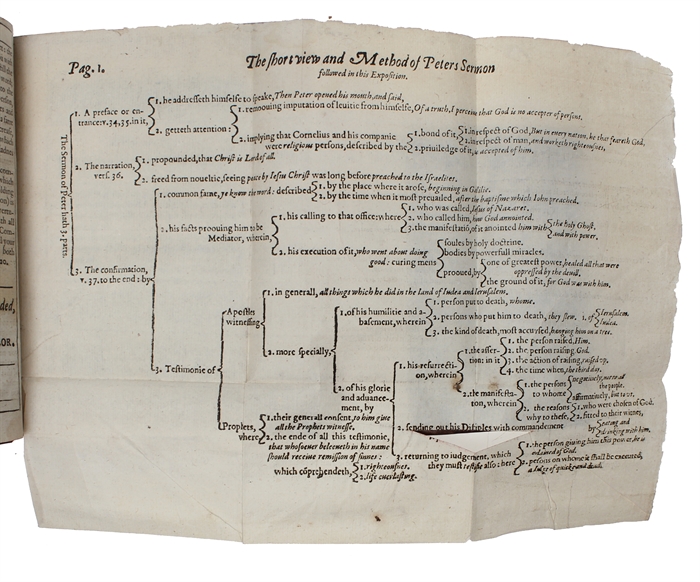 Pag. 1.
The short view and Method of Peters Sermon
followed in this Exposition.
The Sermon of Peter hath 3. parts.
1. A preface or en-
trance: v. 34, 35. in it,
1. he addresseth himselfe to speake, Then Peter opened his mouth, and said,
2. getteth attention:
1. remouing imputation of leuitie from himselfe, Of a truth, I perceiue that God is no accepter of persons.
2. implying that Cornelius and his companie
were religious persons, described by the
1. bond of it,
1. in respect of God, But in euery nation, he that feareth God,
2. in respect of man, and worketh righteousnes,
2. priuiledge of it, is accepted of him.
2. The narration,
vers. 36.
1. propounded, that Christ is Lord of all.
2. freed from noueltie, seeing peace by Iesus Christ was long before preached to the Israelites.
3. The confirmation,
v. 37. to the end: by
1. common fame, ye know the word: described
1. by the place where it arose, beginning in Galilie.
2. by the time when it most preuailed, after the baptisme which Iohn preached.
2. his facts proouing him to be
Mediator, wherein,
1. his calling to that office: where
1. who was called, Iesus of Nazaret.
2. who called him, how God annointed.
3. the manifestatiō, of it, anointed him with
the holy Ghost.
and with power.
2. his execution of it, who went about doing
good: curing mens
soules by holy doctrine.
bodies by powerfull miracles.
prooued, by
one of greatest power, healed all that were
oppressed by the deuill.
the ground of it, for God was with him.
3. Testimonie of
Apostles
witnessing
1. in generall, all things which he did in the land of Iudea and Ierusalem.
2. more specially,
1. of his humilitie and a-
basement, wherein
1. person put to death, whome.
2. persons who put him to death, they slew. i. of
Ierusalem.
Iudea.
3. the kind of death, most accursed, hanging him on a tree.
2. of his glorie
and aduance-
ment, by
1. his resurrecti-
on, wherein
1. the asser-
tion: in it
1. the person raised, Him.
2. the person raising God.
3. the action of raising, raised vp,
4. the time when, the third day.
2. the manifesta-
ton, wherein
1. the persons
to whome
negatiuely, not to all
the people.
affirmatiuely, but to vs.
2. the reasons
why to these.
1. who were chosen of God.
2. fitted to their witnes,
by
eating and
drinking with him.
2. sending out his Disciples with commandement
3. returning to iudgement, which
they must testifie also: here
1. the person giuing him this power, he is
ordained of God.
2. persons on whome it shall be executed,
a Iudge of quicke and dead.
Prophets,
where
1. their generall consent, to him giue
all the Prophets witnesse.
2. the ende of all this testimonie,
that whosoeuer beleeueth in his name
should receiue remission of sinnes:
which cōprehendeth,
1. righteousnes.
2. life euerlasting.